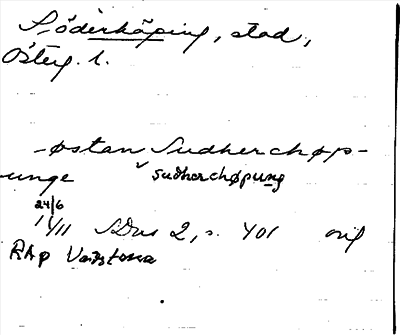 Söderköping, stad,
Österg. l.
-østan Sudherchøp-
unge sudherchøpung
24/6
1411 SDns 2, s. 401 orig
RAp Vadstena